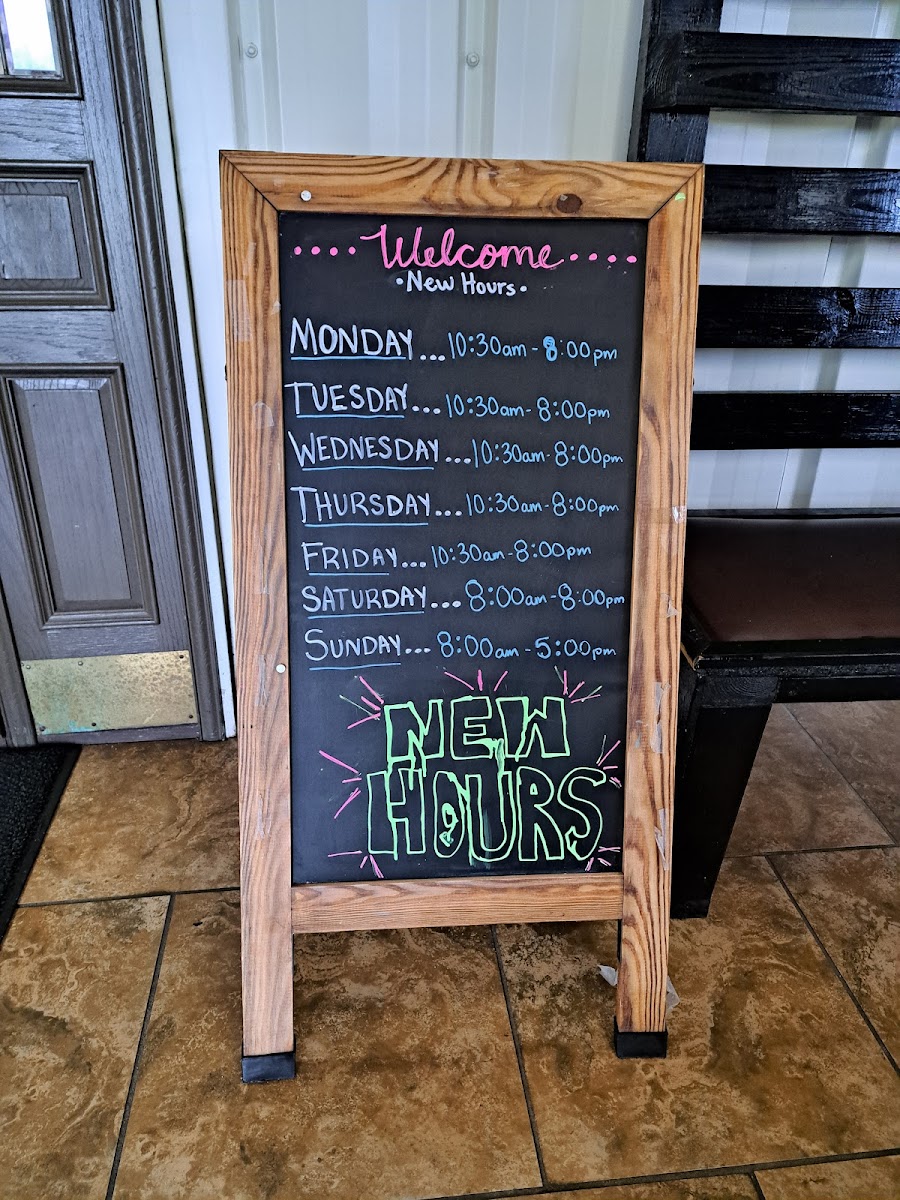 ....Welcome....
•New Hours•
MONDAY...10:30am-8:00pm
TUESDAY...10:30am-8:00pm
WEDNESDAY...10:30am-8:00pm
THURSDAY...10:30am-8:00pm
FRIDAY...10:30am-8:00pm
SATURDAY...8:00am-8:00pm
SUNDAY...8:00am-5:00pm
NEW
HOURS